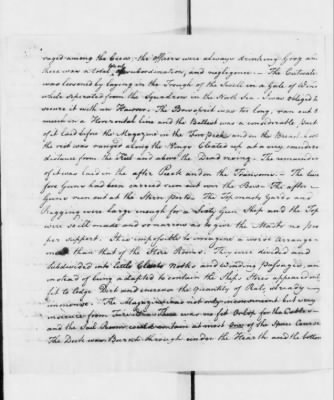 raged among the Crew: the officers were always drinking Grog and
there was a total want of subordination, and negligence. — The Cutwater
was loosened by laying in the Trough of the Swell in a Gale of Wind
while seperated from the Squadron in the North Sea. I was obliged to
secure it with an Hawser. The Bowsprit was too long, ran out too
much in a Horizontal line and the Ballast was a considerable part
of it laid before the Magazine in the Fore peek and on the Breast hooks
the rest was ranged along the Wings Cleated up at a very considerable
distance from the Keel and above the Dead rising. The remainder
of it was laid in the after Peak and on the Transoms. — The
fore Guns had been carried run out over the Bow. The after
Guns run out at the Stern ports. The Top masts Yards and
Rigging were large enough for a Sixty Gun Ship and the Tops
were so ill made and so narrow as to give the Masts no pro
per support. It is impossible to imagine a worse Arrange
ment than that of the Store Rooms. They were divided and
subdivided into little Closets Nooks and Winding Passages, and
instead of being adapted to contain the Ship's Stores appeared only
fit to lodge Dirt and increase the Quantity of Rats, already
immense. The Magazine was not only inconvenient but very
insecure from Fire. There was no fit Orlop for the Cables
and the Sail Room could contain at most one of the Spare Courses
The Deck was Burnt through under the Hearth and the bottom